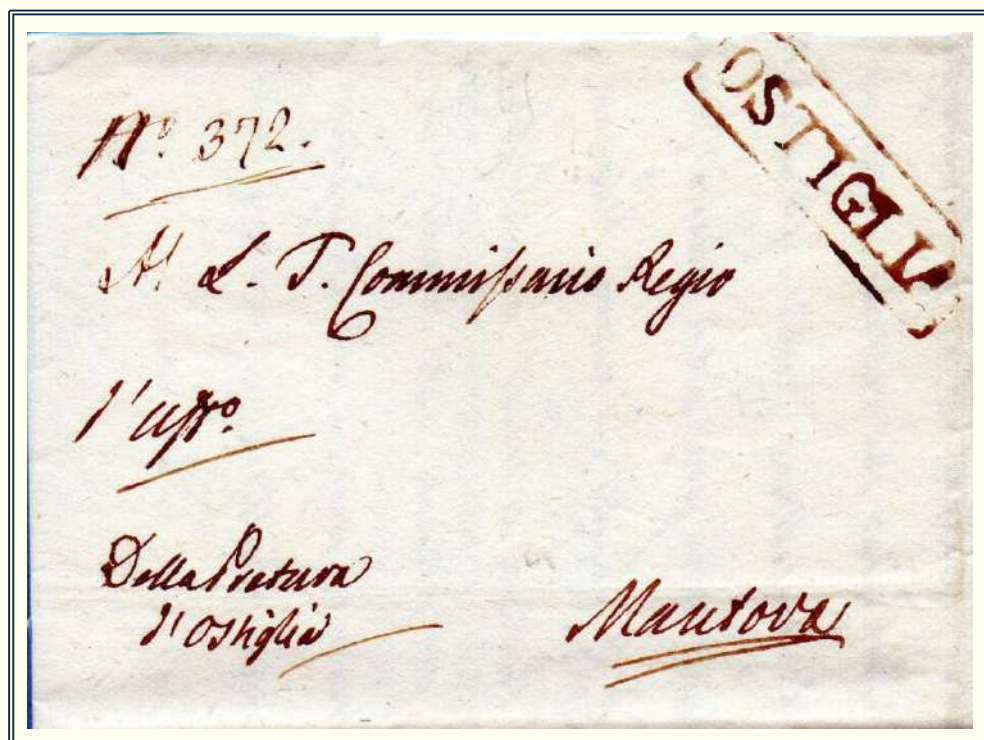 N.º 372.
OSTIGLIA
Al L. T. Commissario Regio
d'uffº
Della Pretura
d'Ostiglia
Mantova